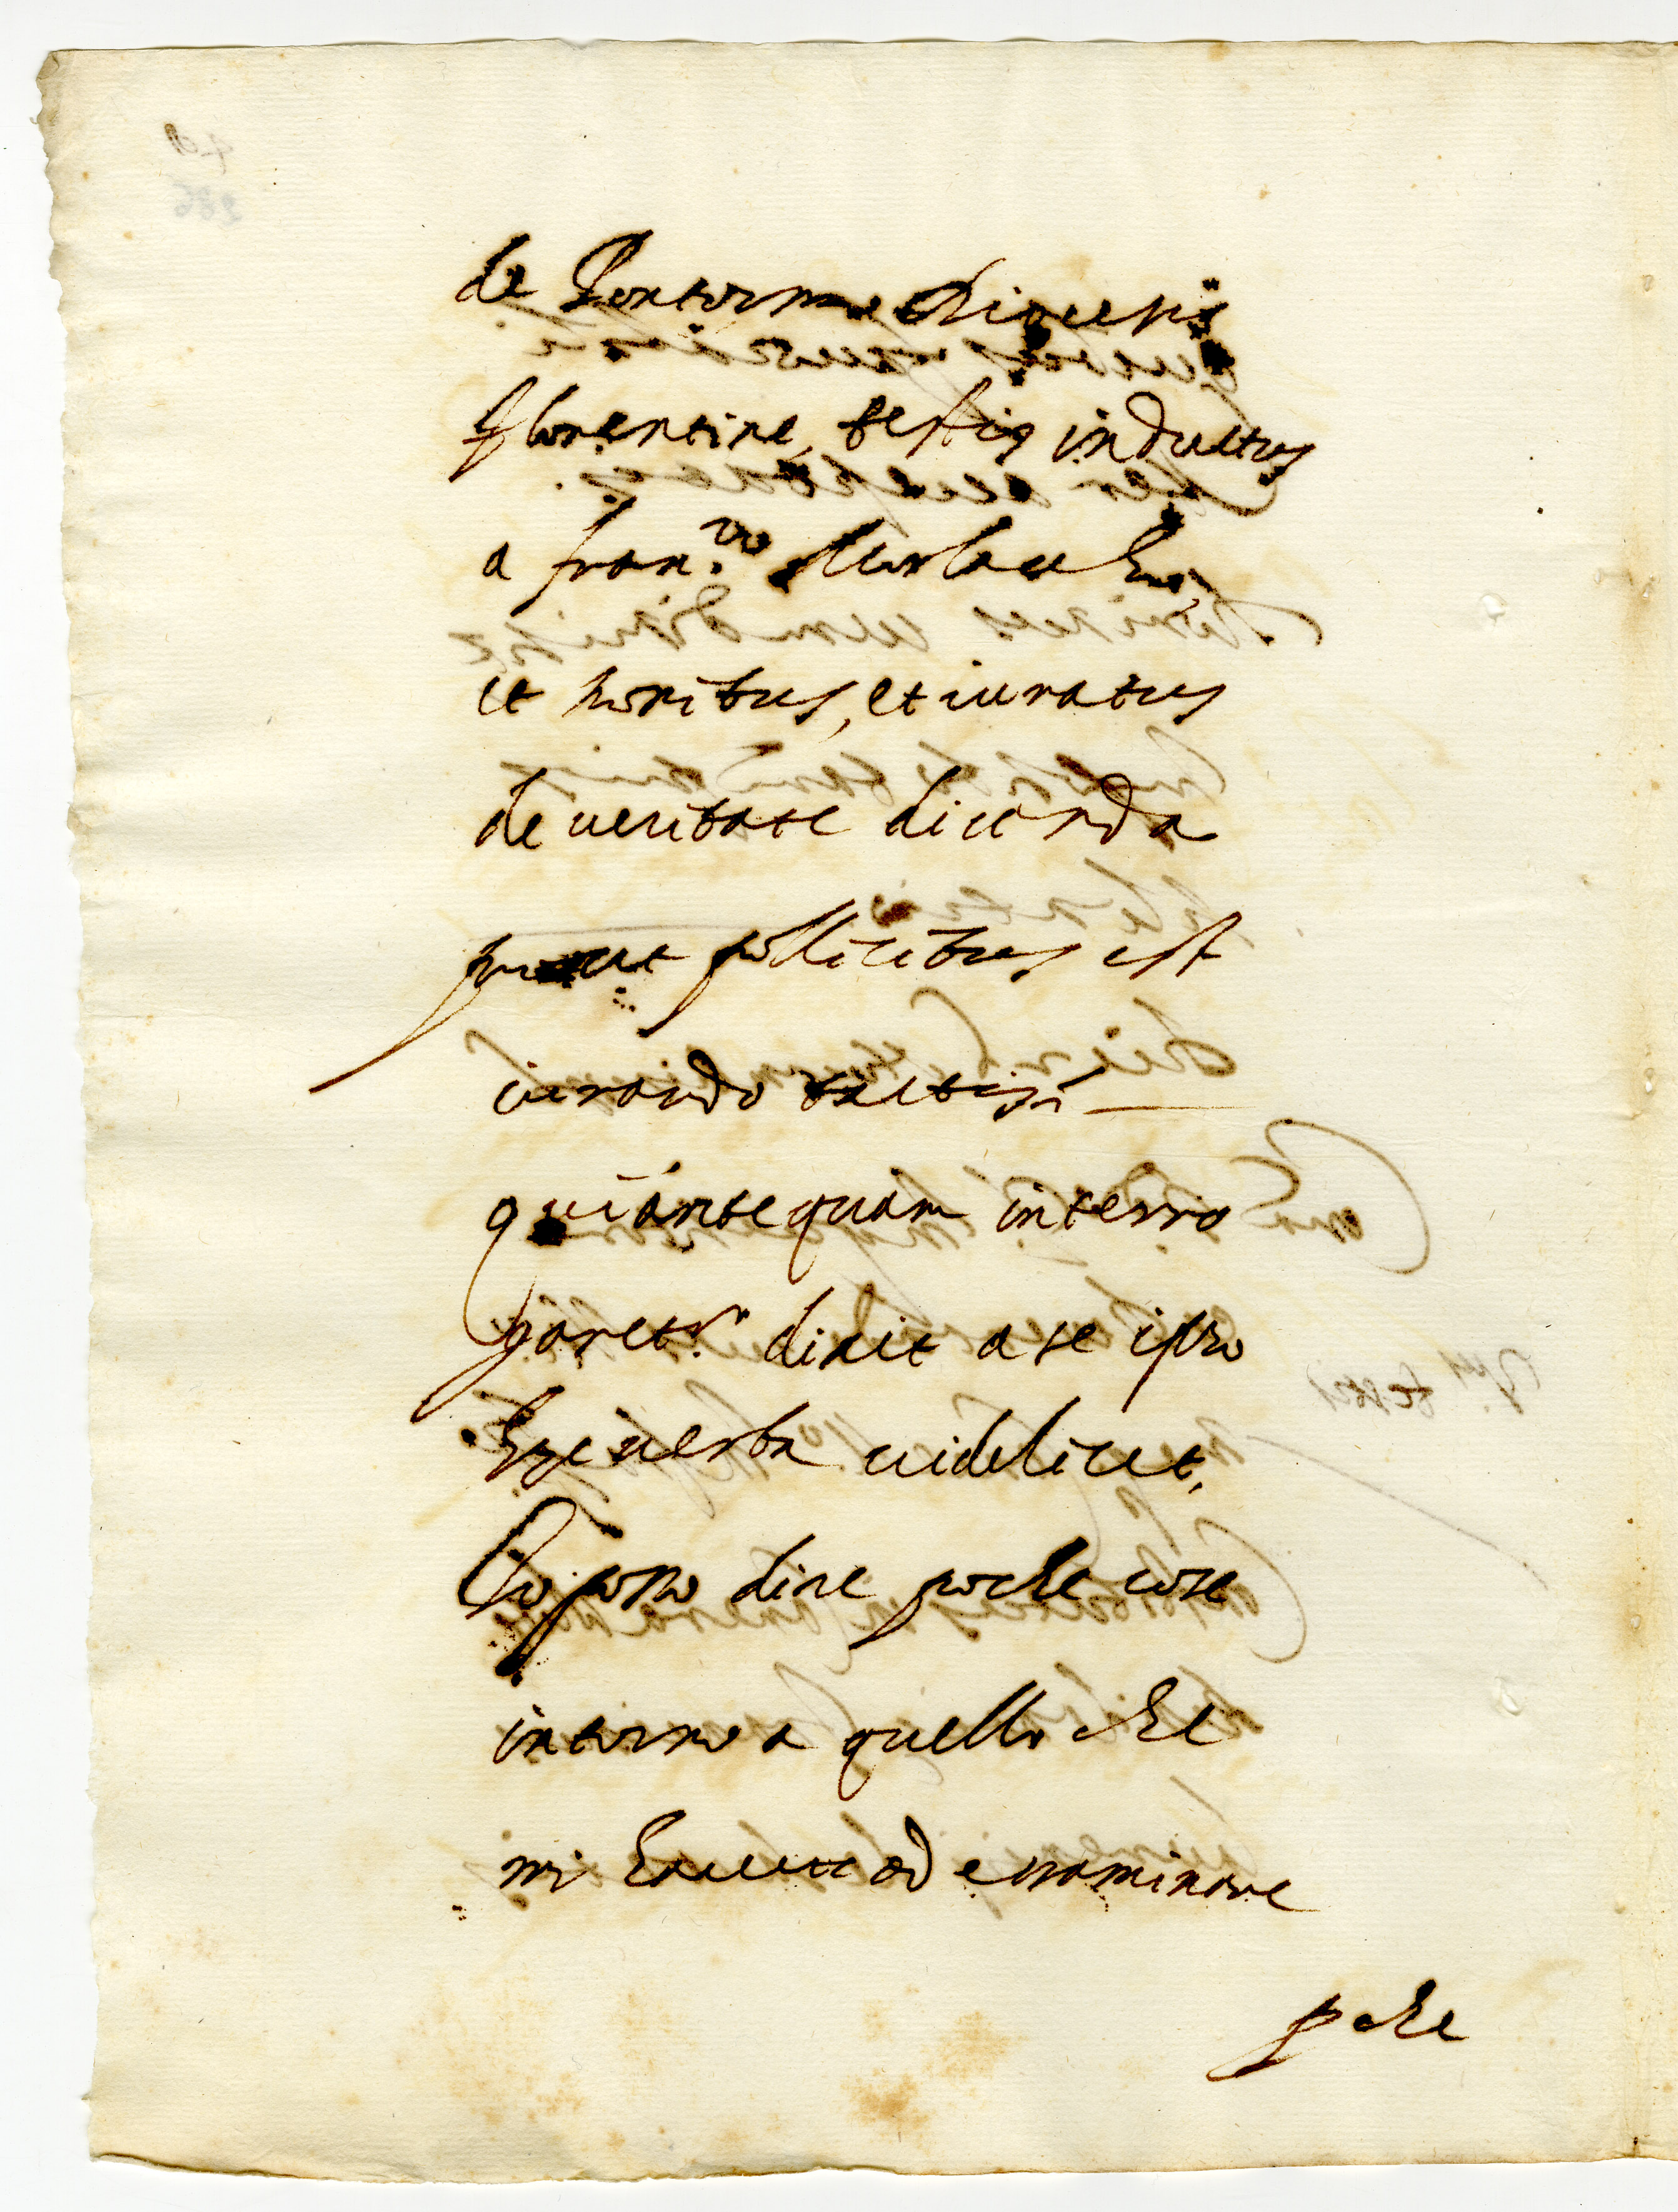 de Pontormo Diocesis
florentine, testis inductus
a fran.co
et monitus, et iuratus
de veritate dicenda
prout pollicitus est
iurando tactis
qui antequam interro
garet.r dixit a se ipso
hec verba videlicet,
Io posso dire poche cose
intorno a quello che
mi havete ad essaminare
p che